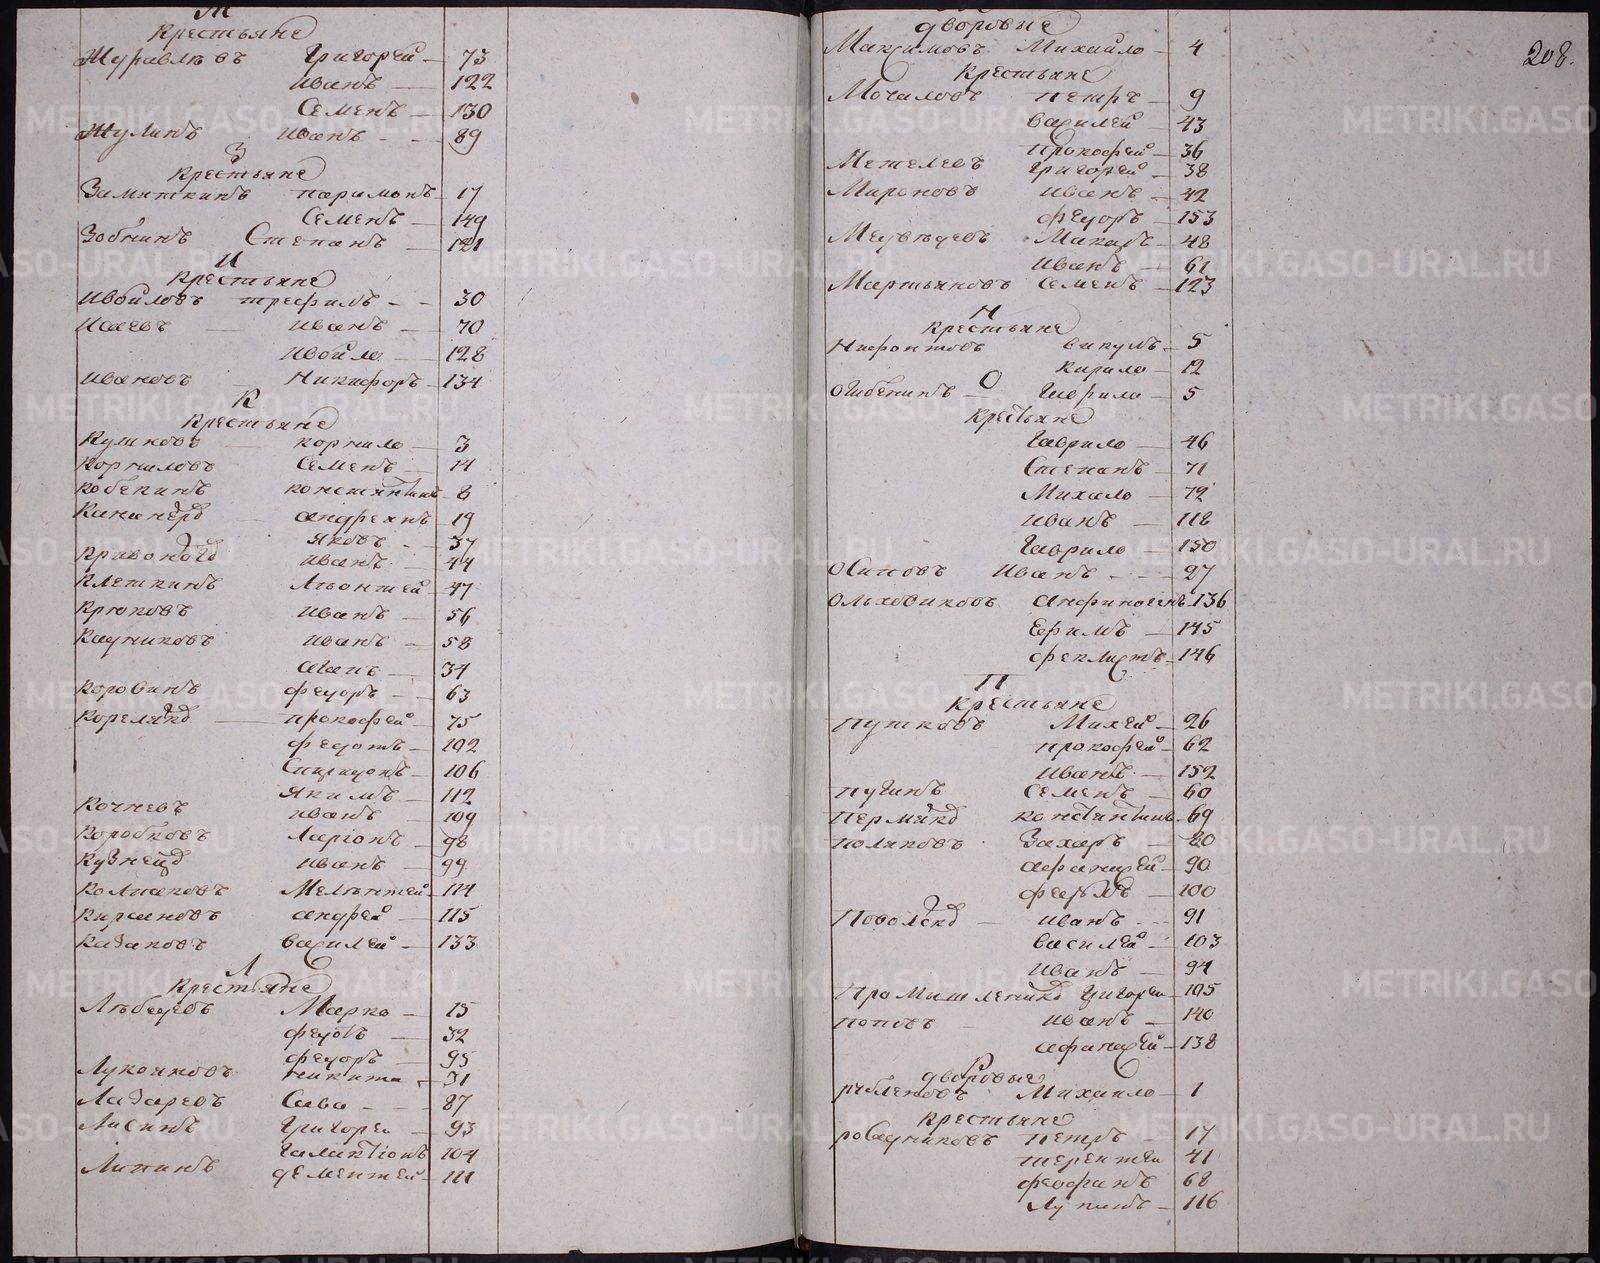 Ж
крестьяне
Журавлѣвъ Григорей — 73
Иванъ — 122
Семенъ — 130
Жулинъ Иванъ — 89
З
крестьяне
Замяткинъ паримонъ 17
Семенъ — 149
Зобнинъ Степанъ — 121
И
крестьяне
Ивойловъ трефилъ — 30
Исаевъ — Иванъ — 70
Ивойло — 128
Ивановъ Никифоръ — 134
К
крестьяне
Куликовъ корнило — 3
Корниловъ Семенъ — 14
кобекинъ константинъ 8
андреянъ 19
Яковъ — 37
Иванъ — 44
Клеткинъ Леонтей — 47
Крюковъ Иванъ — 56
Кадниковъ Иванъ — 58
34
Коровинъ федоръ — 63
прокофей — 75
федотъ — 102
Спиридонъ — 106
Якимъ — 112
Кочневъ Иванъ — 109
Коробковъ Ларіонъ — 98
Иванъ — 99
Колмаковъ Мелентей — 114
Кирсановъ андрей — 115
Казаковъ василей — 133
Л
крестьяне
Лѣбедевъ Марко — 15
федотъ — 32
федоръ — 95
Лукояновъ никита — 31
Лазаревъ Сава — 87
Лисинъ Григорей — 93
Галактіонъ 104
Липинъ дементей — 111
дворовые
Максимовъ Михайло — 4
208.
крестьяне
Мочаловъ петръ — 9
василей — 43
прокофей — 36
Метелевъ Григорей — 38
Мироновъ Иванъ — 42
федоръ — 153
Медвѣдевъ Макаръ — 48
Иванъ — 61
Мартьяновъ Семенъ — 123
Н
крестьяне
Нифонтовъ викулъ — 5
Кирило — 12
О
Ошвенинъ — Гаврило — 5
крестьяне
Гаврило — 46
Степанъ — 71
Михаило — 72
Иванъ — 118
Гаврило — 150
Осиповъ Иванъ — 27
Ольховиковъ Анфиногенъ 136
Ефимъ — 145
феклистъ — 146
П
крестьяне
Путковъ Михей — 26
прокофей — 62
Иванъ — 152
пугинъ Семенъ — 60
константинъ — 69
поляковъ Захаръ — 80
афанасей — 90
100
Иванъ — 91
василей — 103
Иванъ — 94
Григорей — 105
поповъ — Иванъ — 140
афанасей — 138
Р
дворовые
рубленовъ Михаило — 1
крестьяне
роСадниковъ петръ — 17
терентеи 41
феофанъ 68
Лупанъ — 116
METRIKI.GASO-URAL.RU